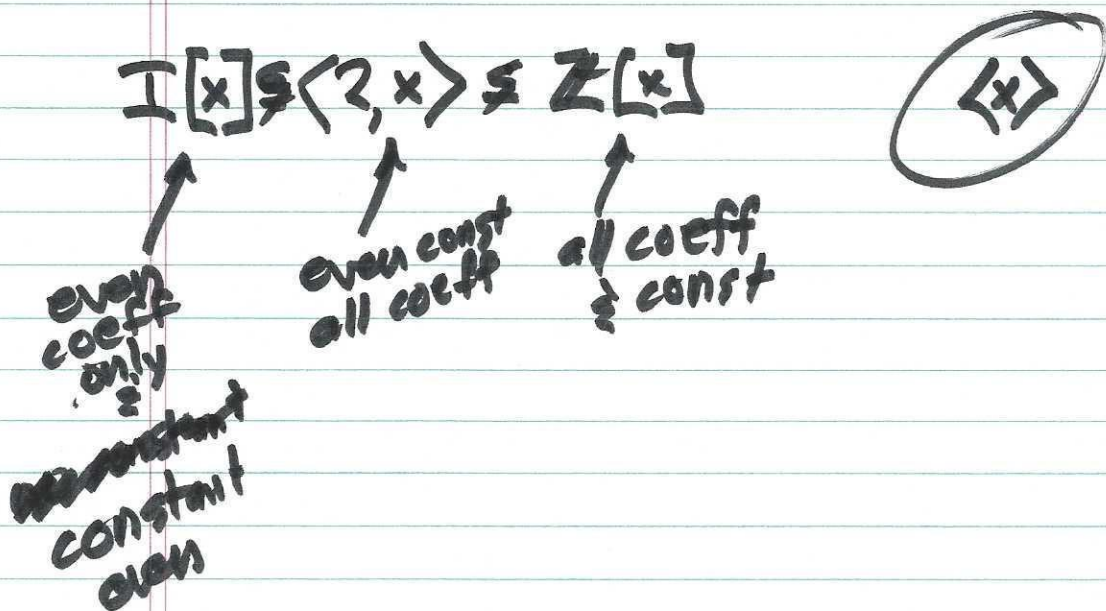 I[x] ⊊ ⟨2, x⟩ ⊊ ℤ[x]
⟨x⟩
even
coeff
only
&
constant
constant
even
even const
all coeff
all coeff
& const